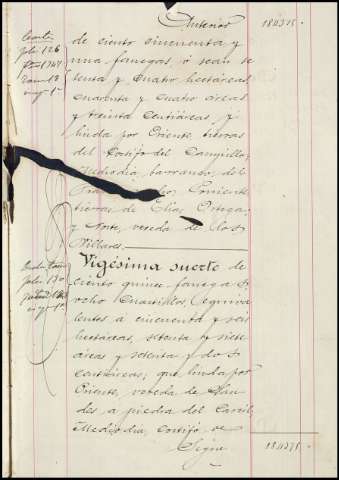 Anterior 184375.
de ciento cincuenta y
una fanegas, ó sean se
tenta y cuatro hectáreas
cuarenta y cuatro áreas
y treinta centiáreas, y
linda por Oriente tierras
del Cortijo del Campillo,
Mediodia, barranco, del
Poniente
tierras de Elias Ortega;
y Norte, vereda de los
Milhares.
Vigésima suerte de
ciento quince fanegas
ocho cuartillos, equiva
lentes a cincuenta y seis
hectáreas, setenta y siete
áreas y setenta y dos
centiáreas; que linda por
Oriente, vereda de
a piedra del
Mediodia, cortijo de
Sigue 184375.